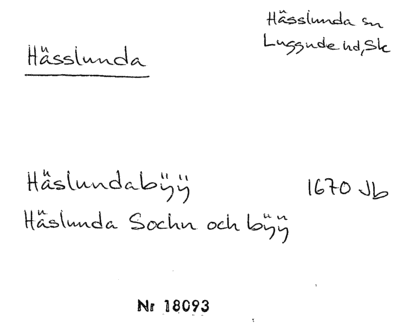 Hässlunda sn
Luggude hd, Sk
Hässlunda
Häslundabÿÿ 1670 Jb
Häslunda Sochn och bÿÿ
Nr 18093